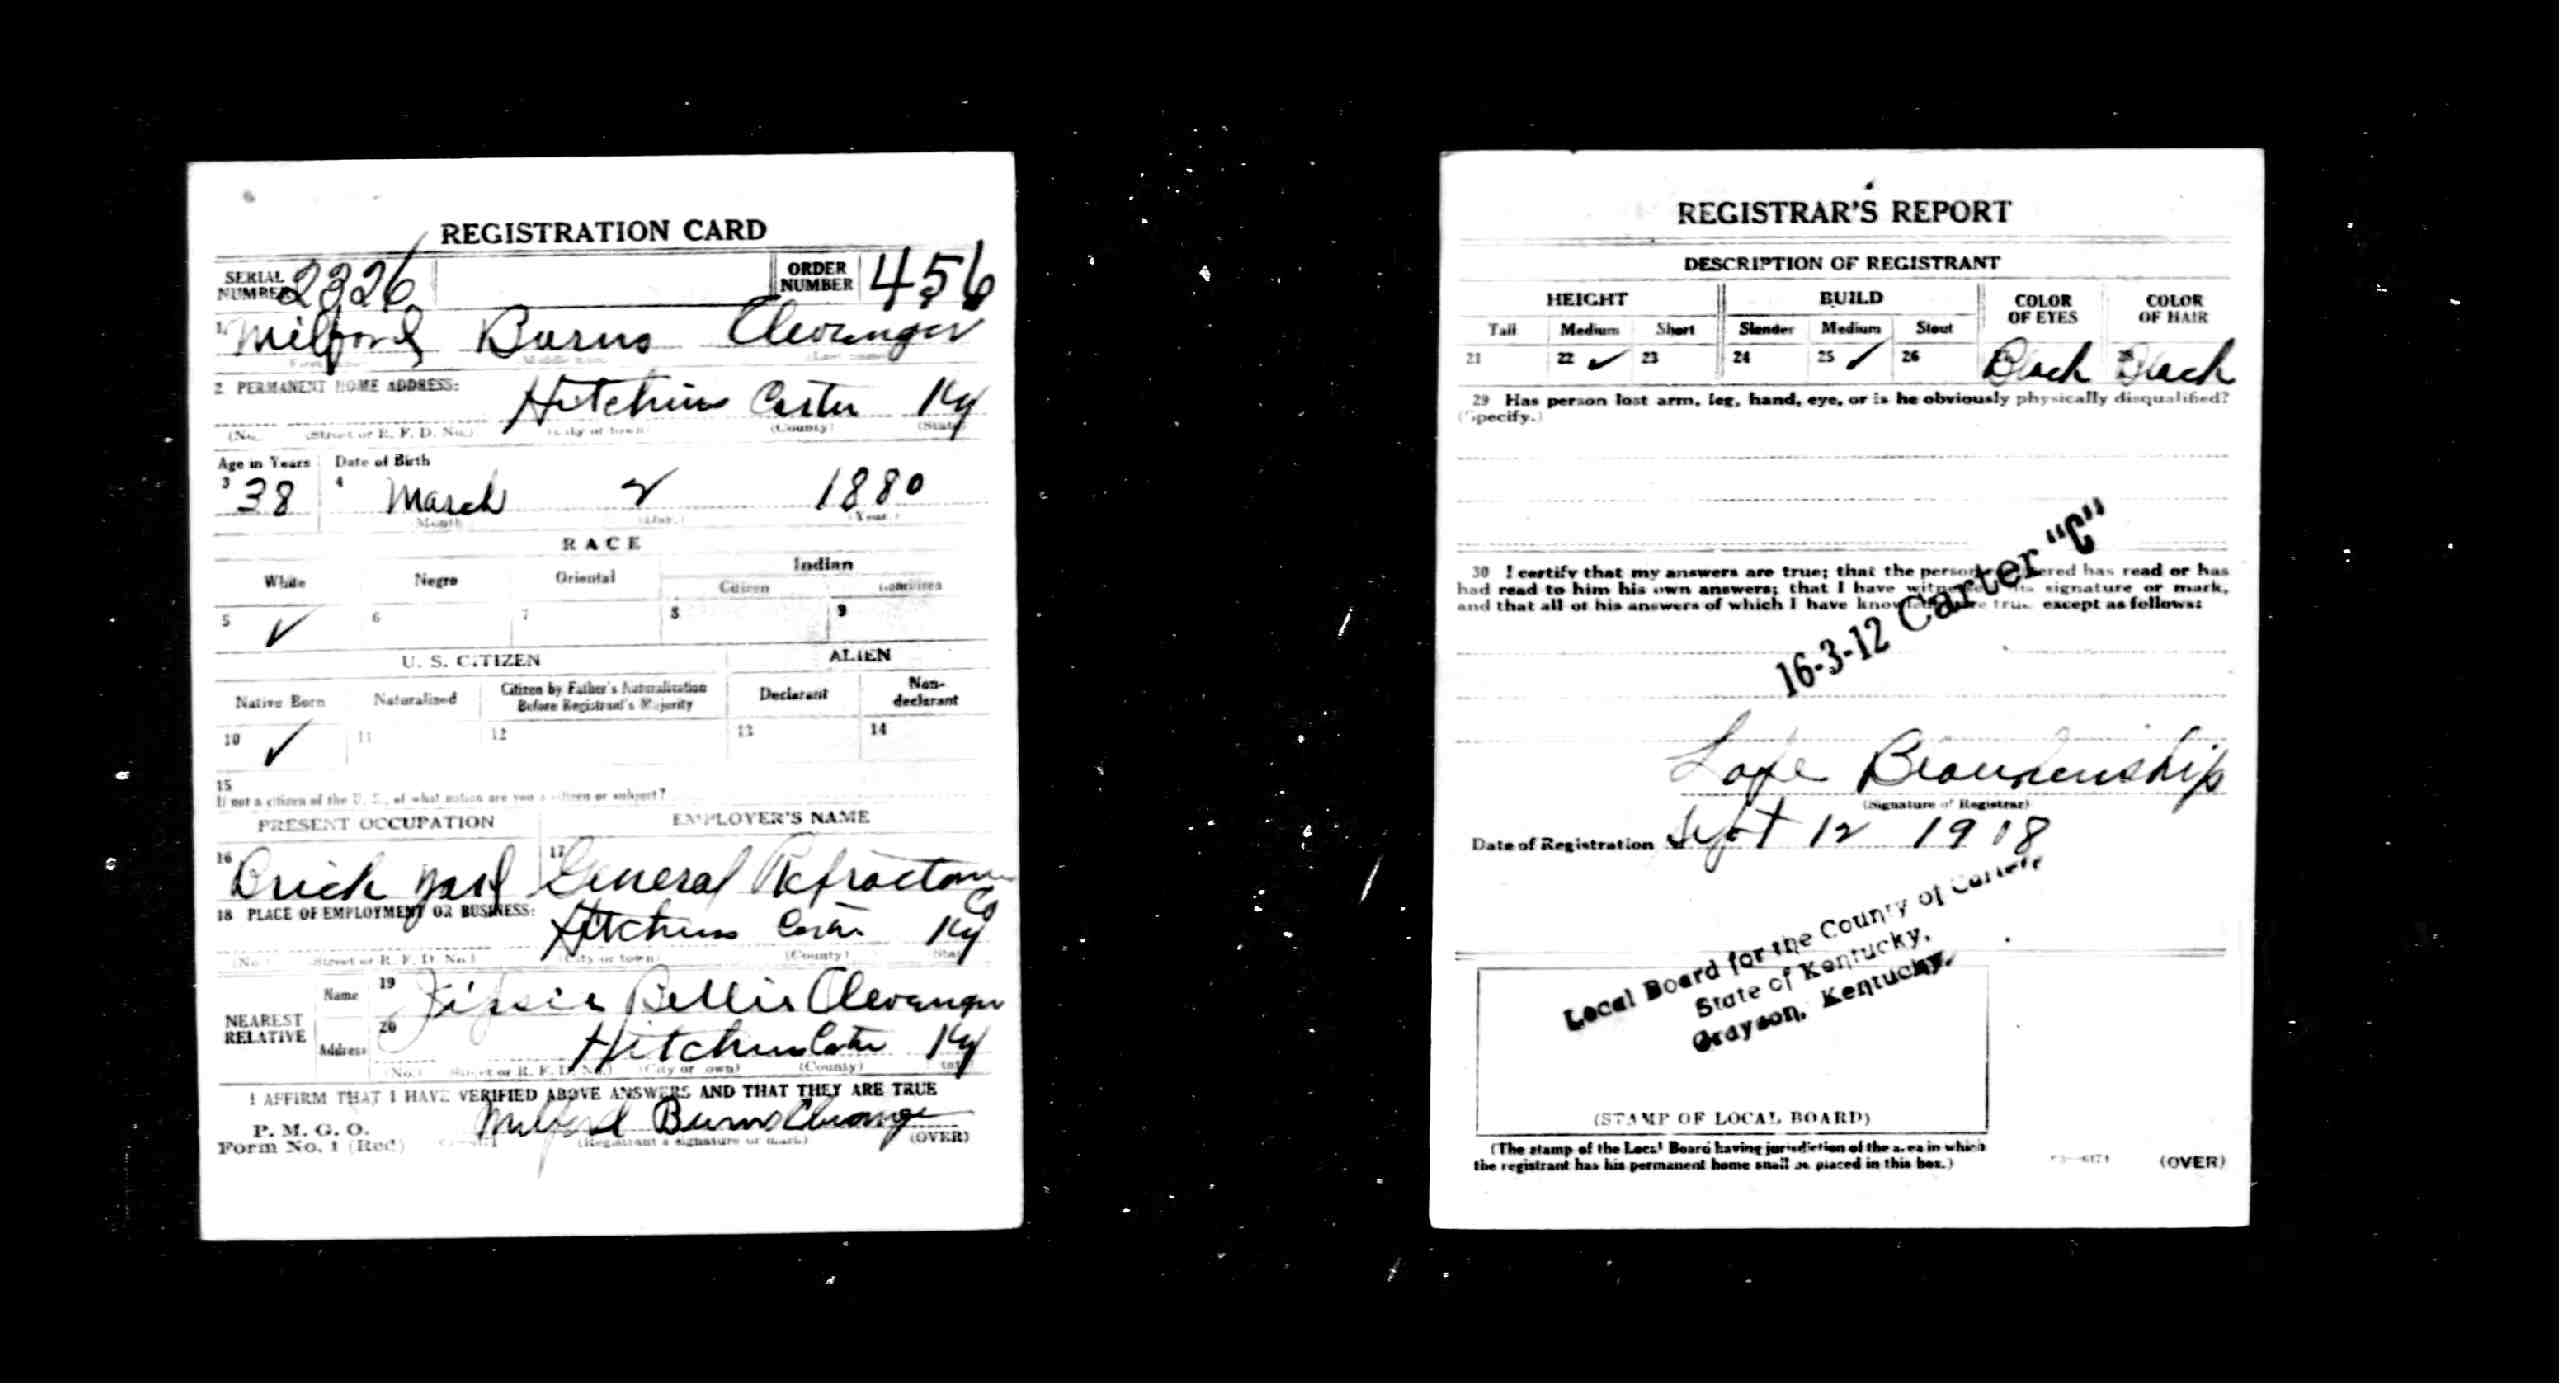 REGISTRATION CARD
SERIAL NUMBER 2326
ORDER NUMBER 456
1 Milford Burns Clevenger
(Middle name) (Last name)
2 PERMANENT HOME ADDRESS:
Hitchins Carter Ky
(No.) (Street or R. F. D. No.) (City or town) (County) (State)
Age in Years Date of Birth
3 38 4 March 2 1880
(Month) (Day.) (Year.)
RACE
White Negro Oriental Indian
Citizen Noncitizen
5 ✓ 6 7 8 9
U. S. CITIZEN ALIEN
Native Born Naturalized Citizen by Father's Naturalization Before Registrant's Majority Declarant Non-declarant
10 ✓ 11 12 13 14
15
If not a citizen of the U. S., of what nation are you a citizen or subject?
PRESENT OCCUPATION EMPLOYER'S NAME
16 Brick yard 17 General Refractories Co
18 PLACE OF EMPLOYMENT OR BUSINESS:
Hitchins Carter Ky
(No.) (Street or R. F. D. No.) (City or town) (County) (State)
NEAREST RELATIVE
Name 19 Bellie Clevenger
Address 20 Hitchins Carter Ky
(No.) (Street or R. F. D. No.) (City or town) (County) (State)
I AFFIRM THAT I HAVE VERIFIED ABOVE ANSWERS AND THAT THEY ARE TRUE
P. M. G. O.
Form No. 1 (Red)
Milford Burns Clevenger
(Registrant's signature or mark) (OVER)
REGISTRAR'S REPORT
DESCRIPTION OF REGISTRANT
HEIGHT BUILD COLOR OF EYES COLOR OF HAIR
Tall Medium Short Slender Medium Stout
21 22 ✓ 23 24 25 ✓ 26 Black Black
29 Has person lost arm, leg, hand, eye, or is he obviously physically disqualified?
(Specify.)
30 I certify that my answers are true; that the person registered has read or has
had read to him his own answers; that I have witnessed his signature or mark,
and that all of his answers of which I have knowledge are true, except as follows:
16-3-12 Carter "C"
(Signature of Registrar)
Date of Registration Sept 12 1918
Local Board for the County of Carter,
State of Kentucky,
Grayson, Kentucky.
(STAMP OF LOCAL BOARD)
(The stamp of the Local Board having jurisdiction of the area in which
the registrant has his permanent home shall be placed in this box.)
(OVER)